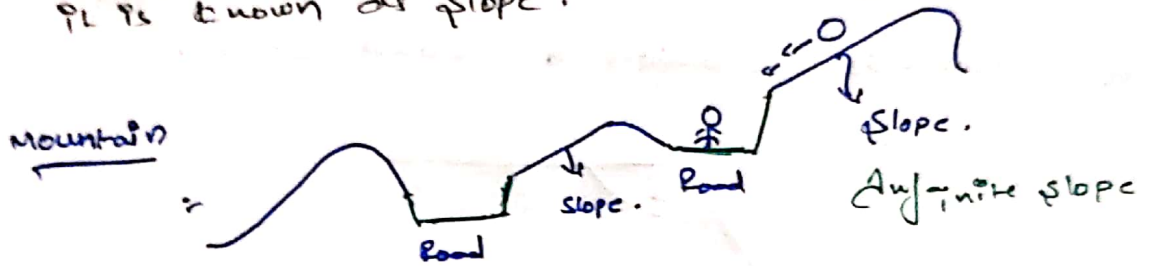 it is known as slope.
Mountain
:-
Road
slope.
Road
Slope.
Infinite slope